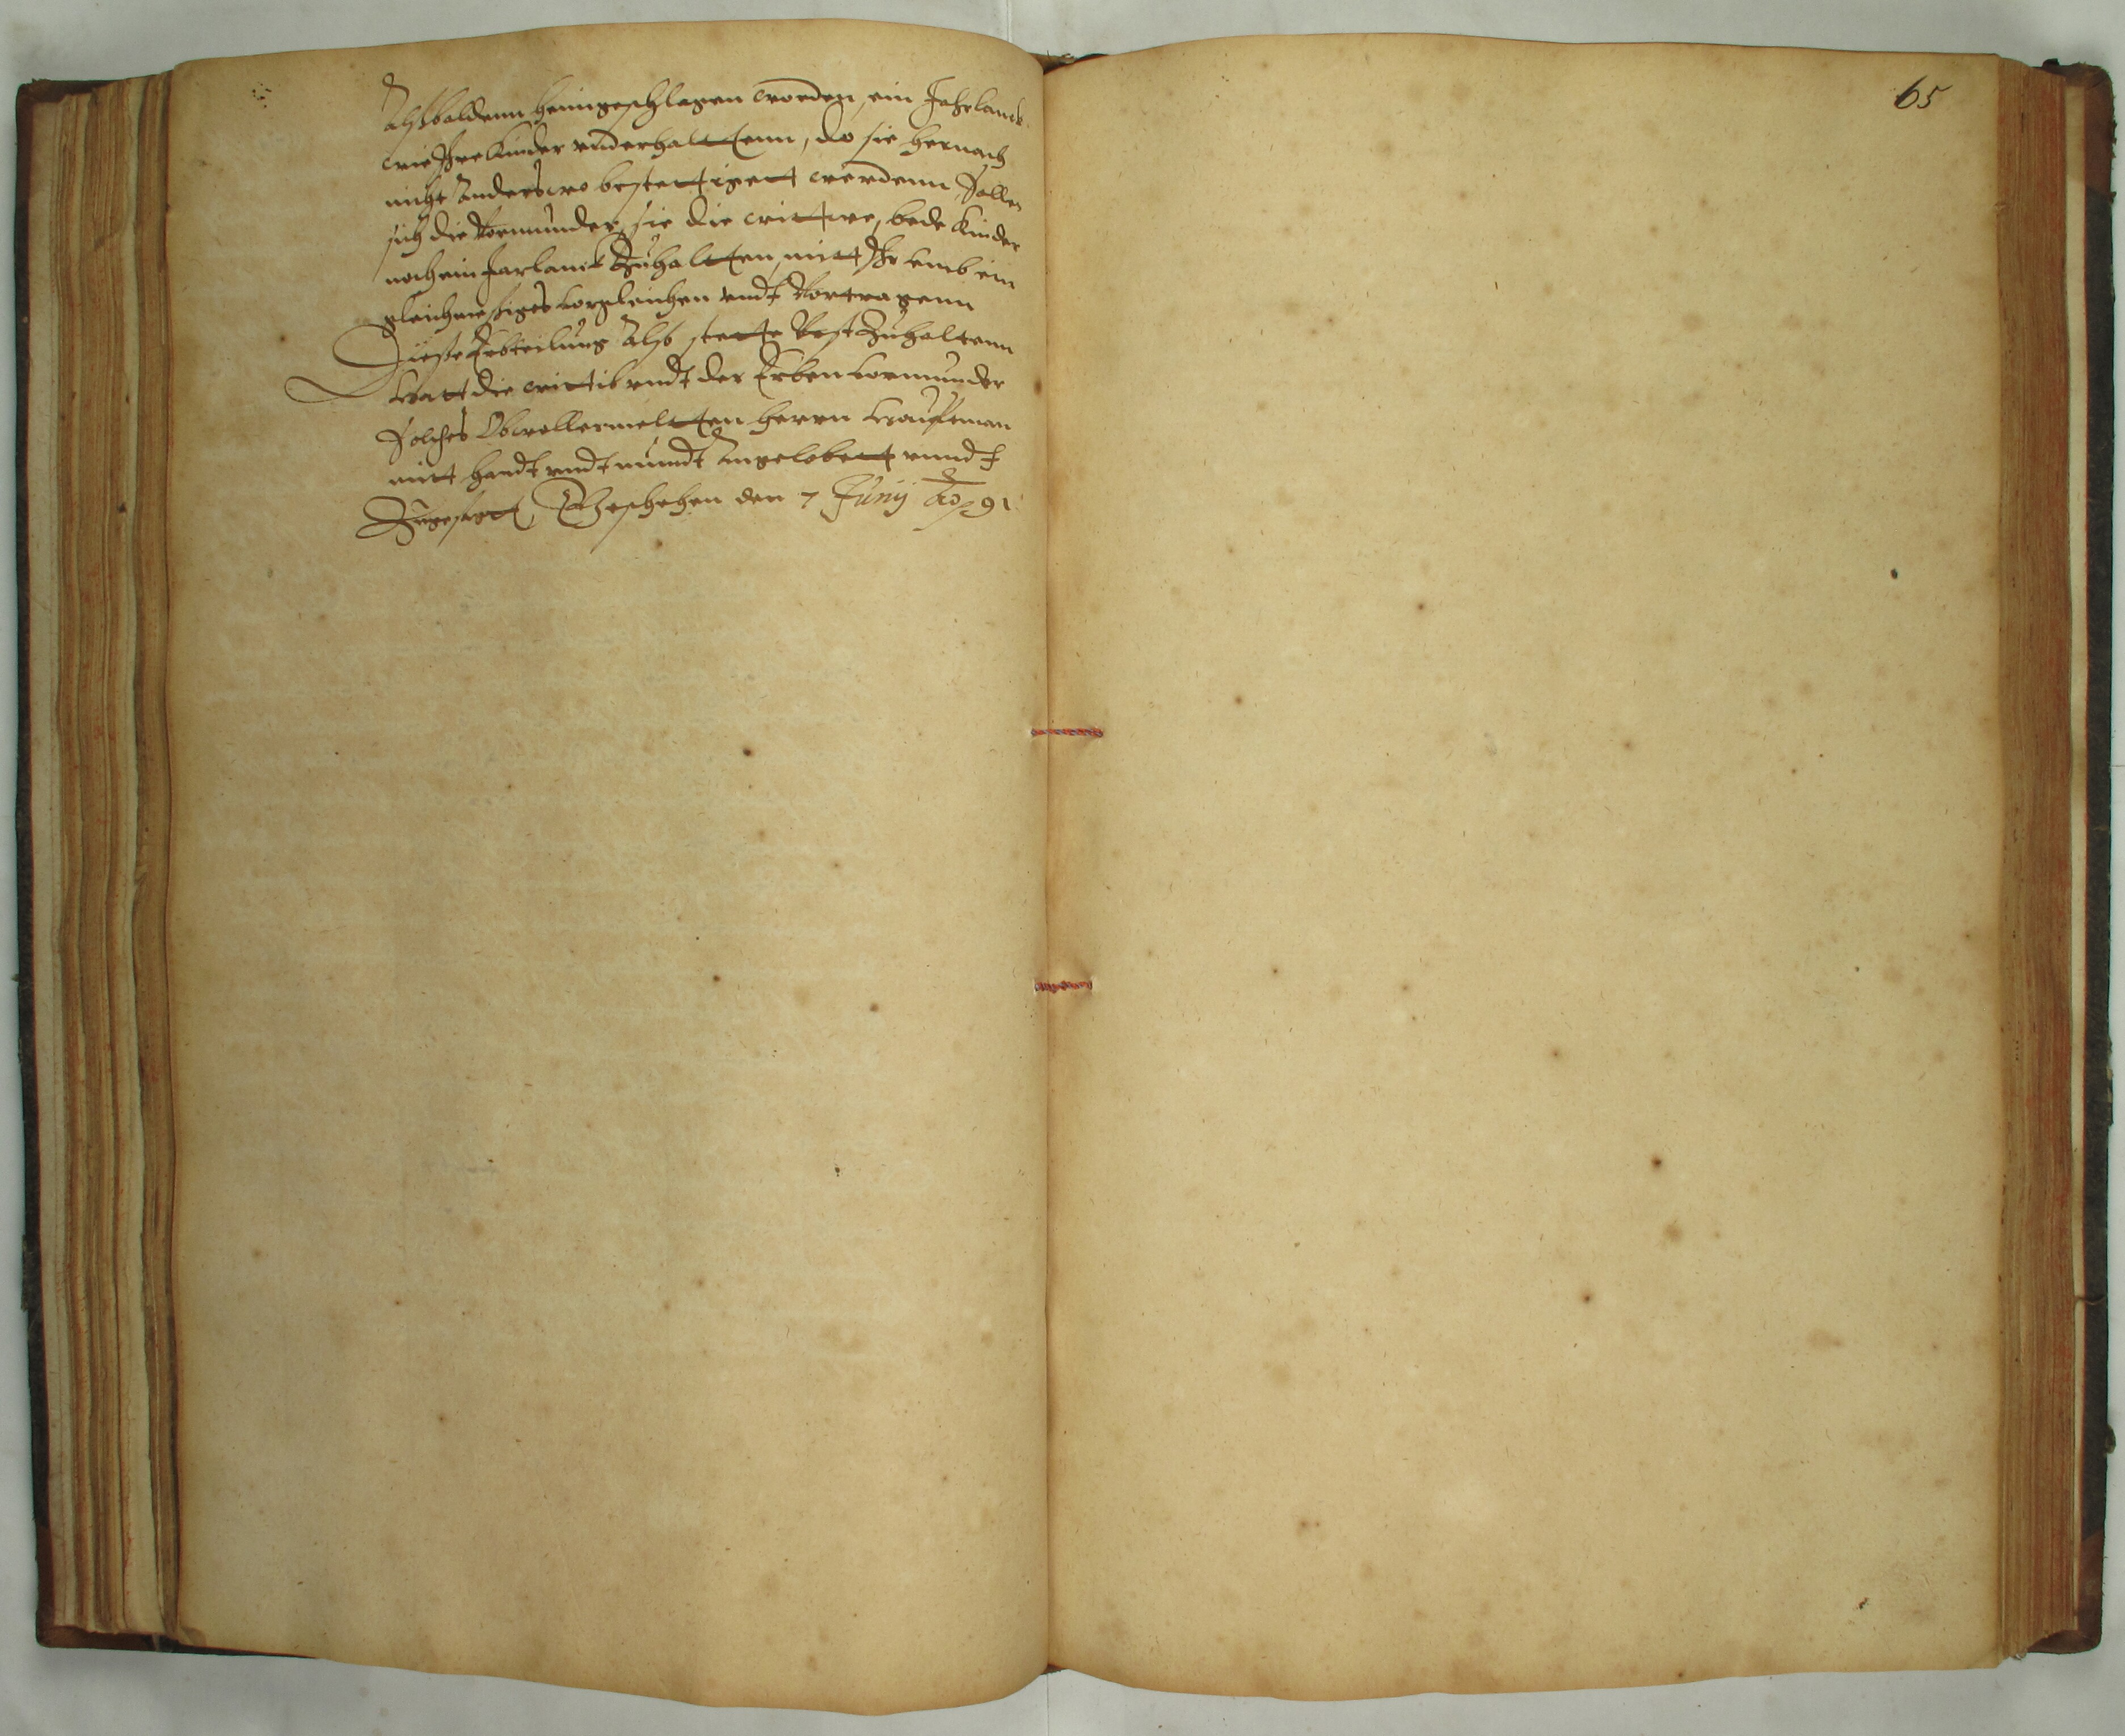 Alßbaldenn heimgeschlagen worden, ein Jahrlanck
wie Ihre Kinder vnderhalttenn, do sie hernach
nicht Anderswo bestettigett werdenn sollen
sich die Vormunder, sie die wittwe, bede Kinder
noch ein Jarlanck Zuhaltten, mitt Ihr umb ein
gleichmessiges vorgleichen vndt Vortragenn
Dieße Erbteilung Alß stette Vest Zuhaltenn
hatt die wittib vndt der Erben vormunder
Solches Obvollermeltten herrn Hauptman
mitt handt vndt mundt Angelobett vnndt
Zugesagtt, Geschehen den 7 Junij Ao 91
65